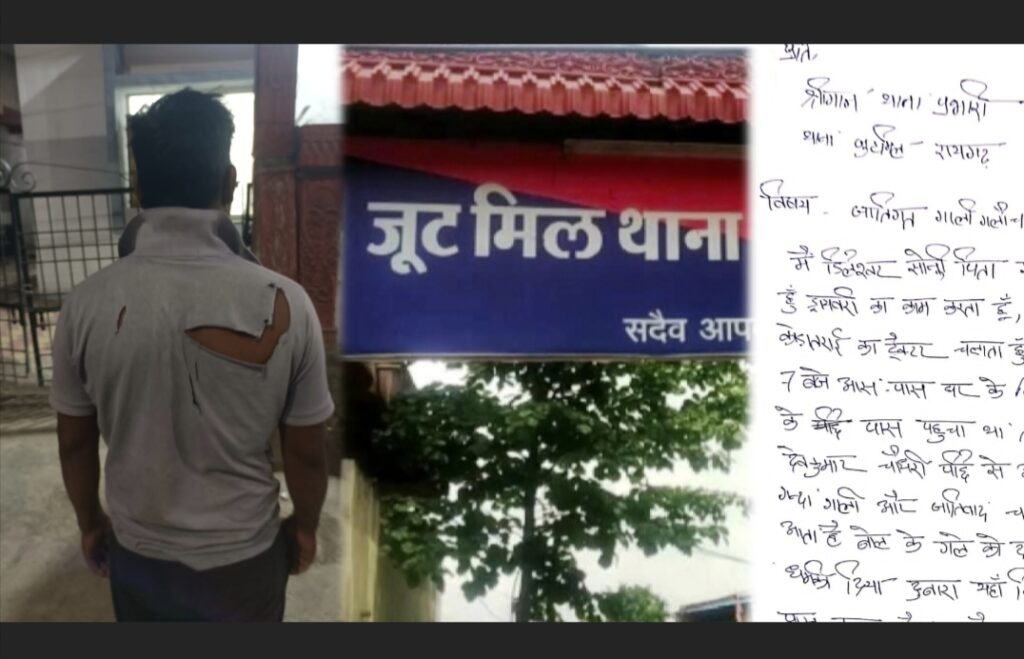 जूट मिल थाना
सदैव आप
प्रति,
श्रीमान थाना प्रभारी
थाना जुटमिल रायगढ़
विषय - जातिगत गाली गलौच
मै सोनी पिता
हुँ ड्रायवरी का काम करता हूँ,
का ट्रेक्टर चलाता हुँ
7 बजे आस-पास घर के
के पास पहुचा था
देवकुमार चौधरी पीछे से
गन्दा गाली और जातिवाद
आता है बोल के गले को
धमकि दिया दुबारा यहाँ